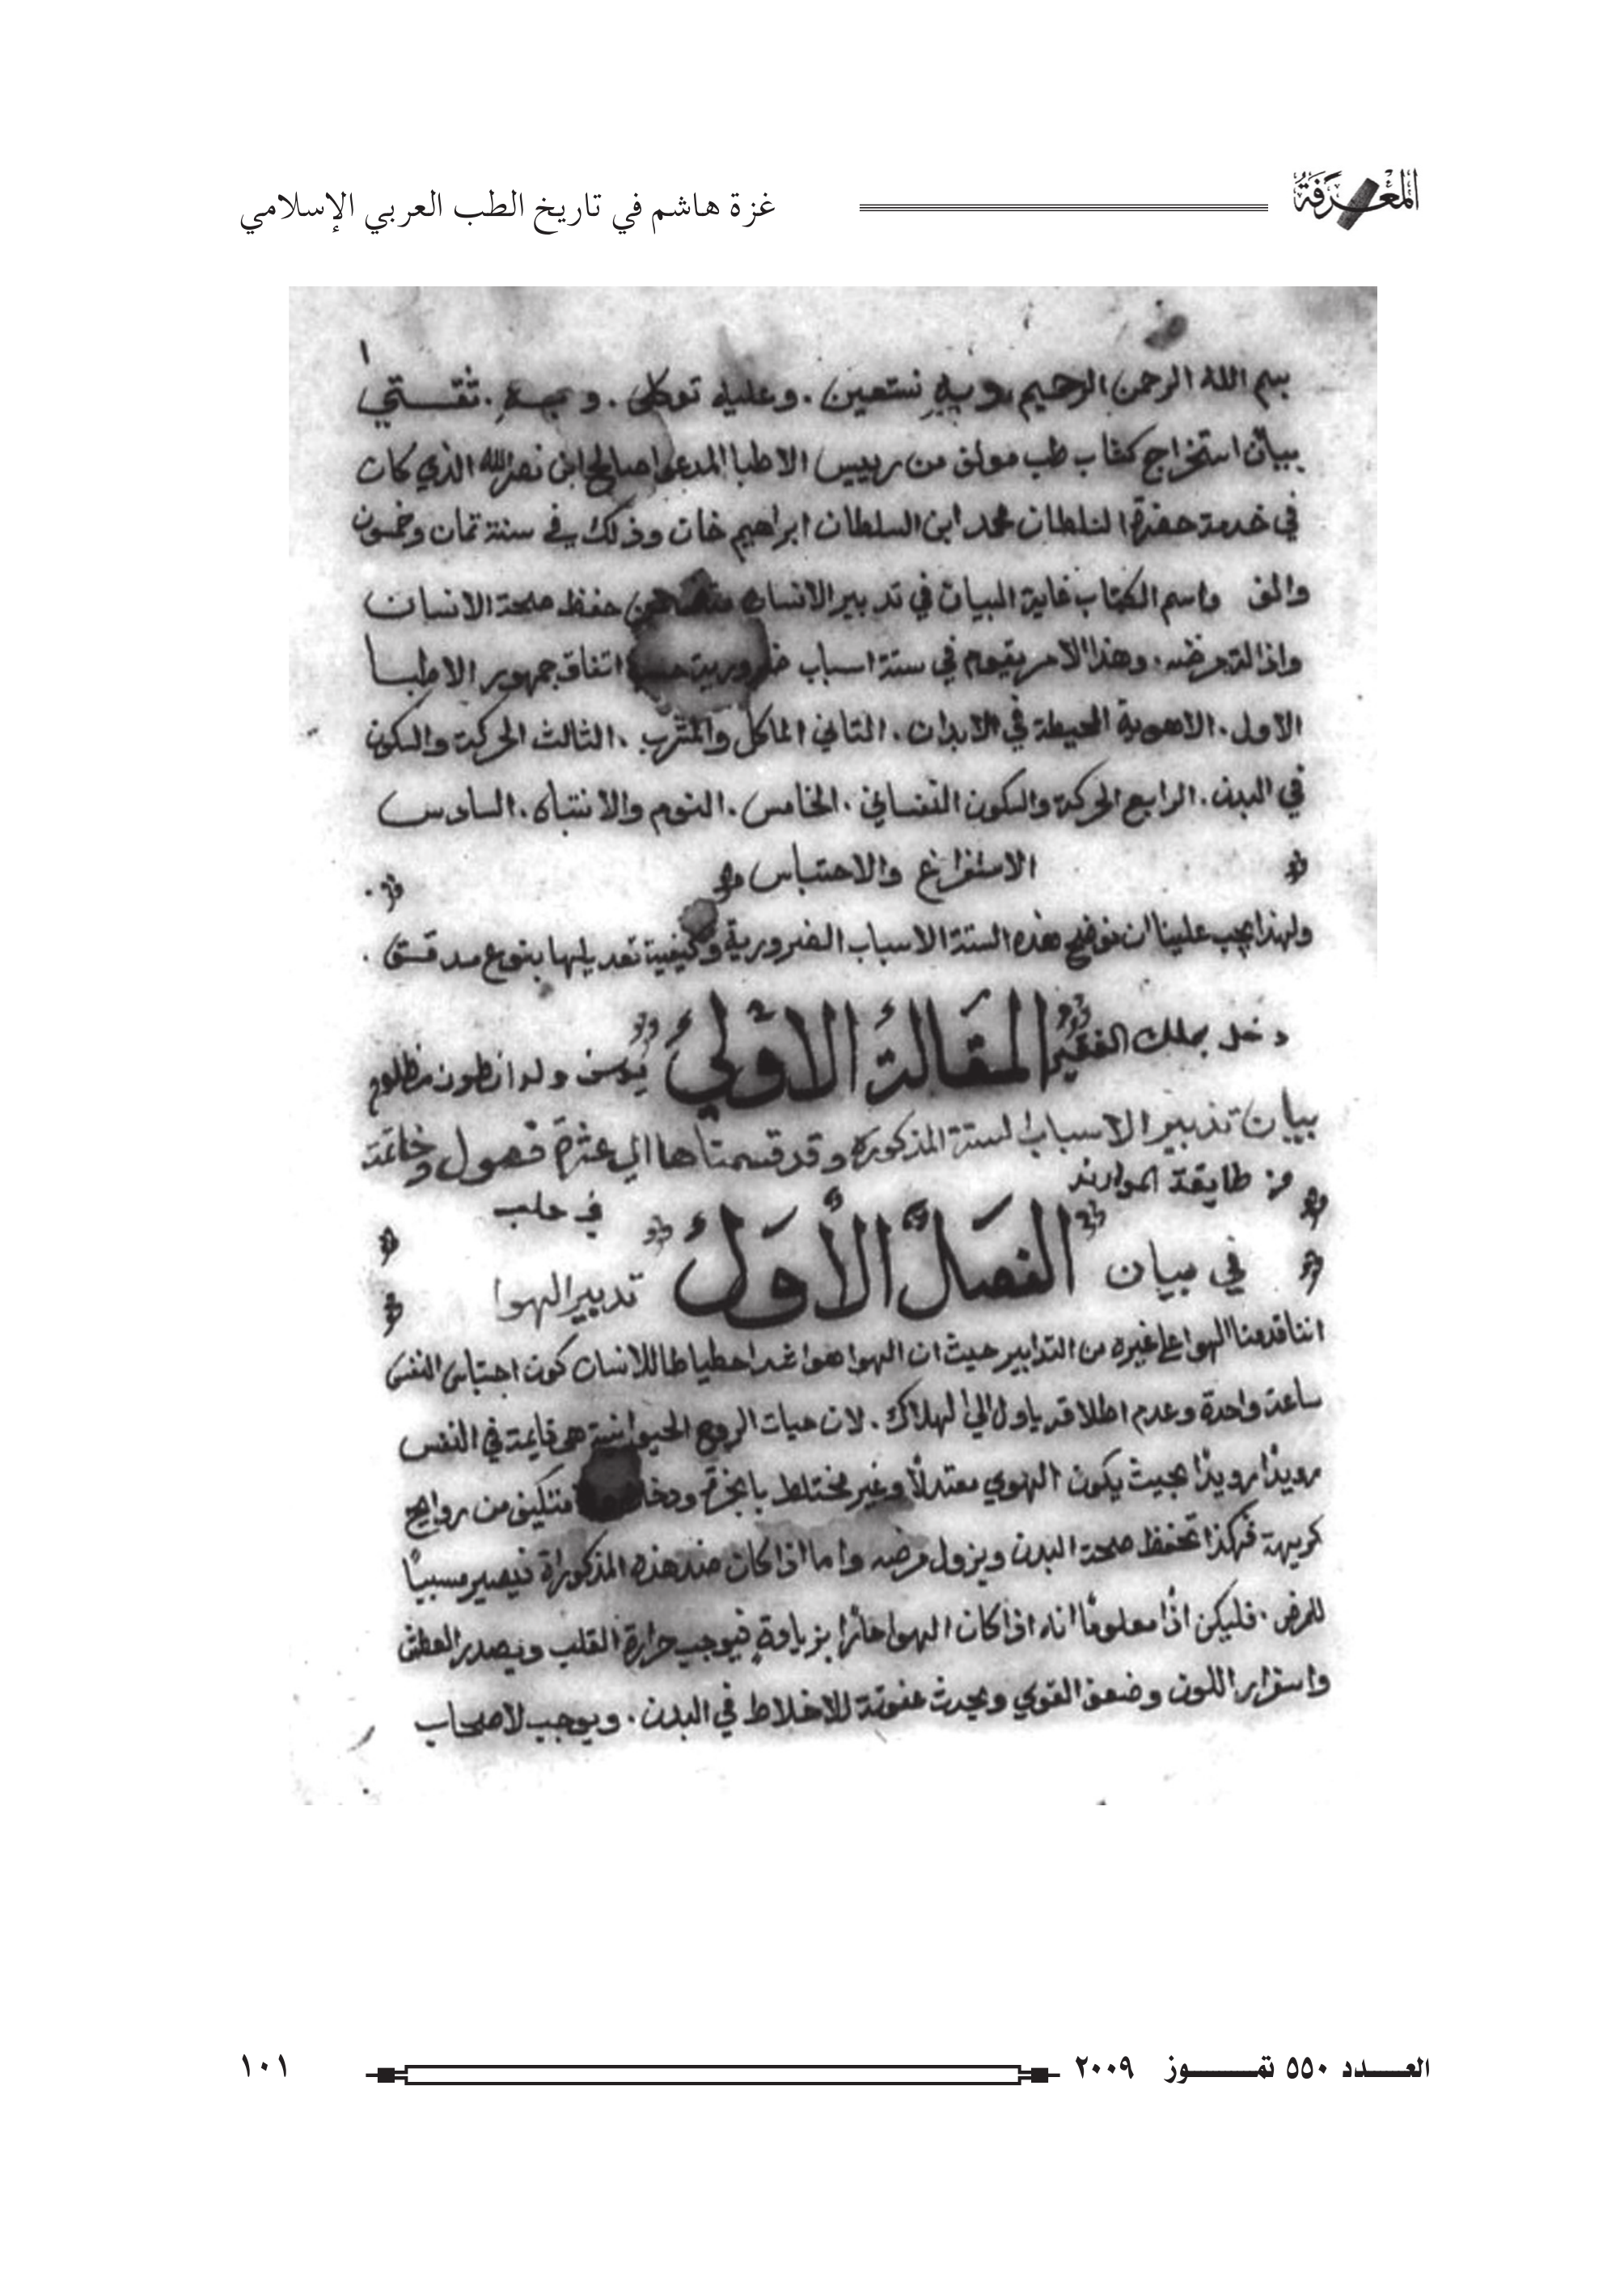 المعرفة
غزة هاشم في تاريخ الطب العربي الإسلامي
بسم الله الرحمن الرحيم وبه نستعين . وعليه توكلي . و ثقتي
بيان استخراج كتاب طب مولف من رييس الاطبا المدعى صالح ابن نصر الله الذي كان
في خدمة حضرة السلطان محمد ابن السلطان ابراهيم خان وذلك في سنة تمان وخمسون
والف واسم الكتاب غاية البيان في تدبير الانسان حفظ صحة الانسان
واذالة مرضه . وهذا الامر يقوم في ستة اسباب ضرورية حسب اتفاق جمهور الاطبا
الاول . الاهوية المحيطة في الابدان . التاني الماكل والمشرب . الثالث الحركة والسكون
في البدن . الرابع الحركة والسكون النفساني . الخامس . النوم والانتباه . السادس
الاستفراغ والاحتباس
ولهذا يجب علينا ان نوضح هذه الستة الاسباب الضرورية وكيفية تعديلها بنوع مدقق .
دخل بملك الفقير
المقالة الاولي
يوسف ولد انطون مظلوم
بيان تدبير الاسباب الستة المذكورة وقد قسمتاها الي عشرة فصول وخاتمة
من طايفة الموارنه
في حلب
في بيان الفصل الأول تدبير الهوا
اننا قدمنا الهوا على غيره من التدابير حيث ان الهوا هوا للانسان كون احتباس النفس
ساعة واحدة وعدم اطلاقه ياول الي الهلاك . لان حيات الروح الحيوانية هي قايمة في النفس
رويدًا رويدًا بحيث يكون الهوي معتدلًا وغير مختلط بابخرة متكيف من روايح
كريهة فهكذا تحفظ صحة البدن ويزول مرضه واما اذا كان ضد هذه المذكورة فيصير مسببًا
للمرض . فليكن اذًا معلومًا انه اذا كان الهوا حارًا بزيادة فيوجب حرارة القلب ويصدر العطش
واسفرار اللون وضعف القوي ويحدث عفونة للاخلاط في البدن . ويوجب لاصحاب
العـــدد ٥٥٠ تمـــوز ٢٠٠٩
١٠١